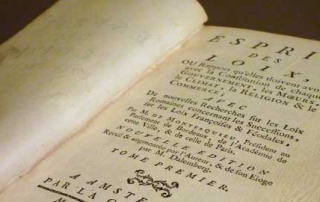 ESPRI
DES
LOIX,
OU Rapport qu'elles doivent avo
avec la Constitution de chaque
GOUVERNEMENT, les MŒURS,
le CLIMAT, la RELIGION & le
COMMERCE,
AVEC
De nouvelles Recherches sur les Loix
Romaines concernant les Successions,
sur les Loix Françoises & Féodales,
Par M. DE MONTESQUIEU, Président au
Parlement de Bordeaux, de l'Académie de
cette Ville, & de celle de Paris,
NOUVELLE EDITION
Revuë & augmentée par l'Auteur, & de son Eloge
par M. Dalemberg.
TOME PREMIER.
A AMSTE
PAR LA C
M